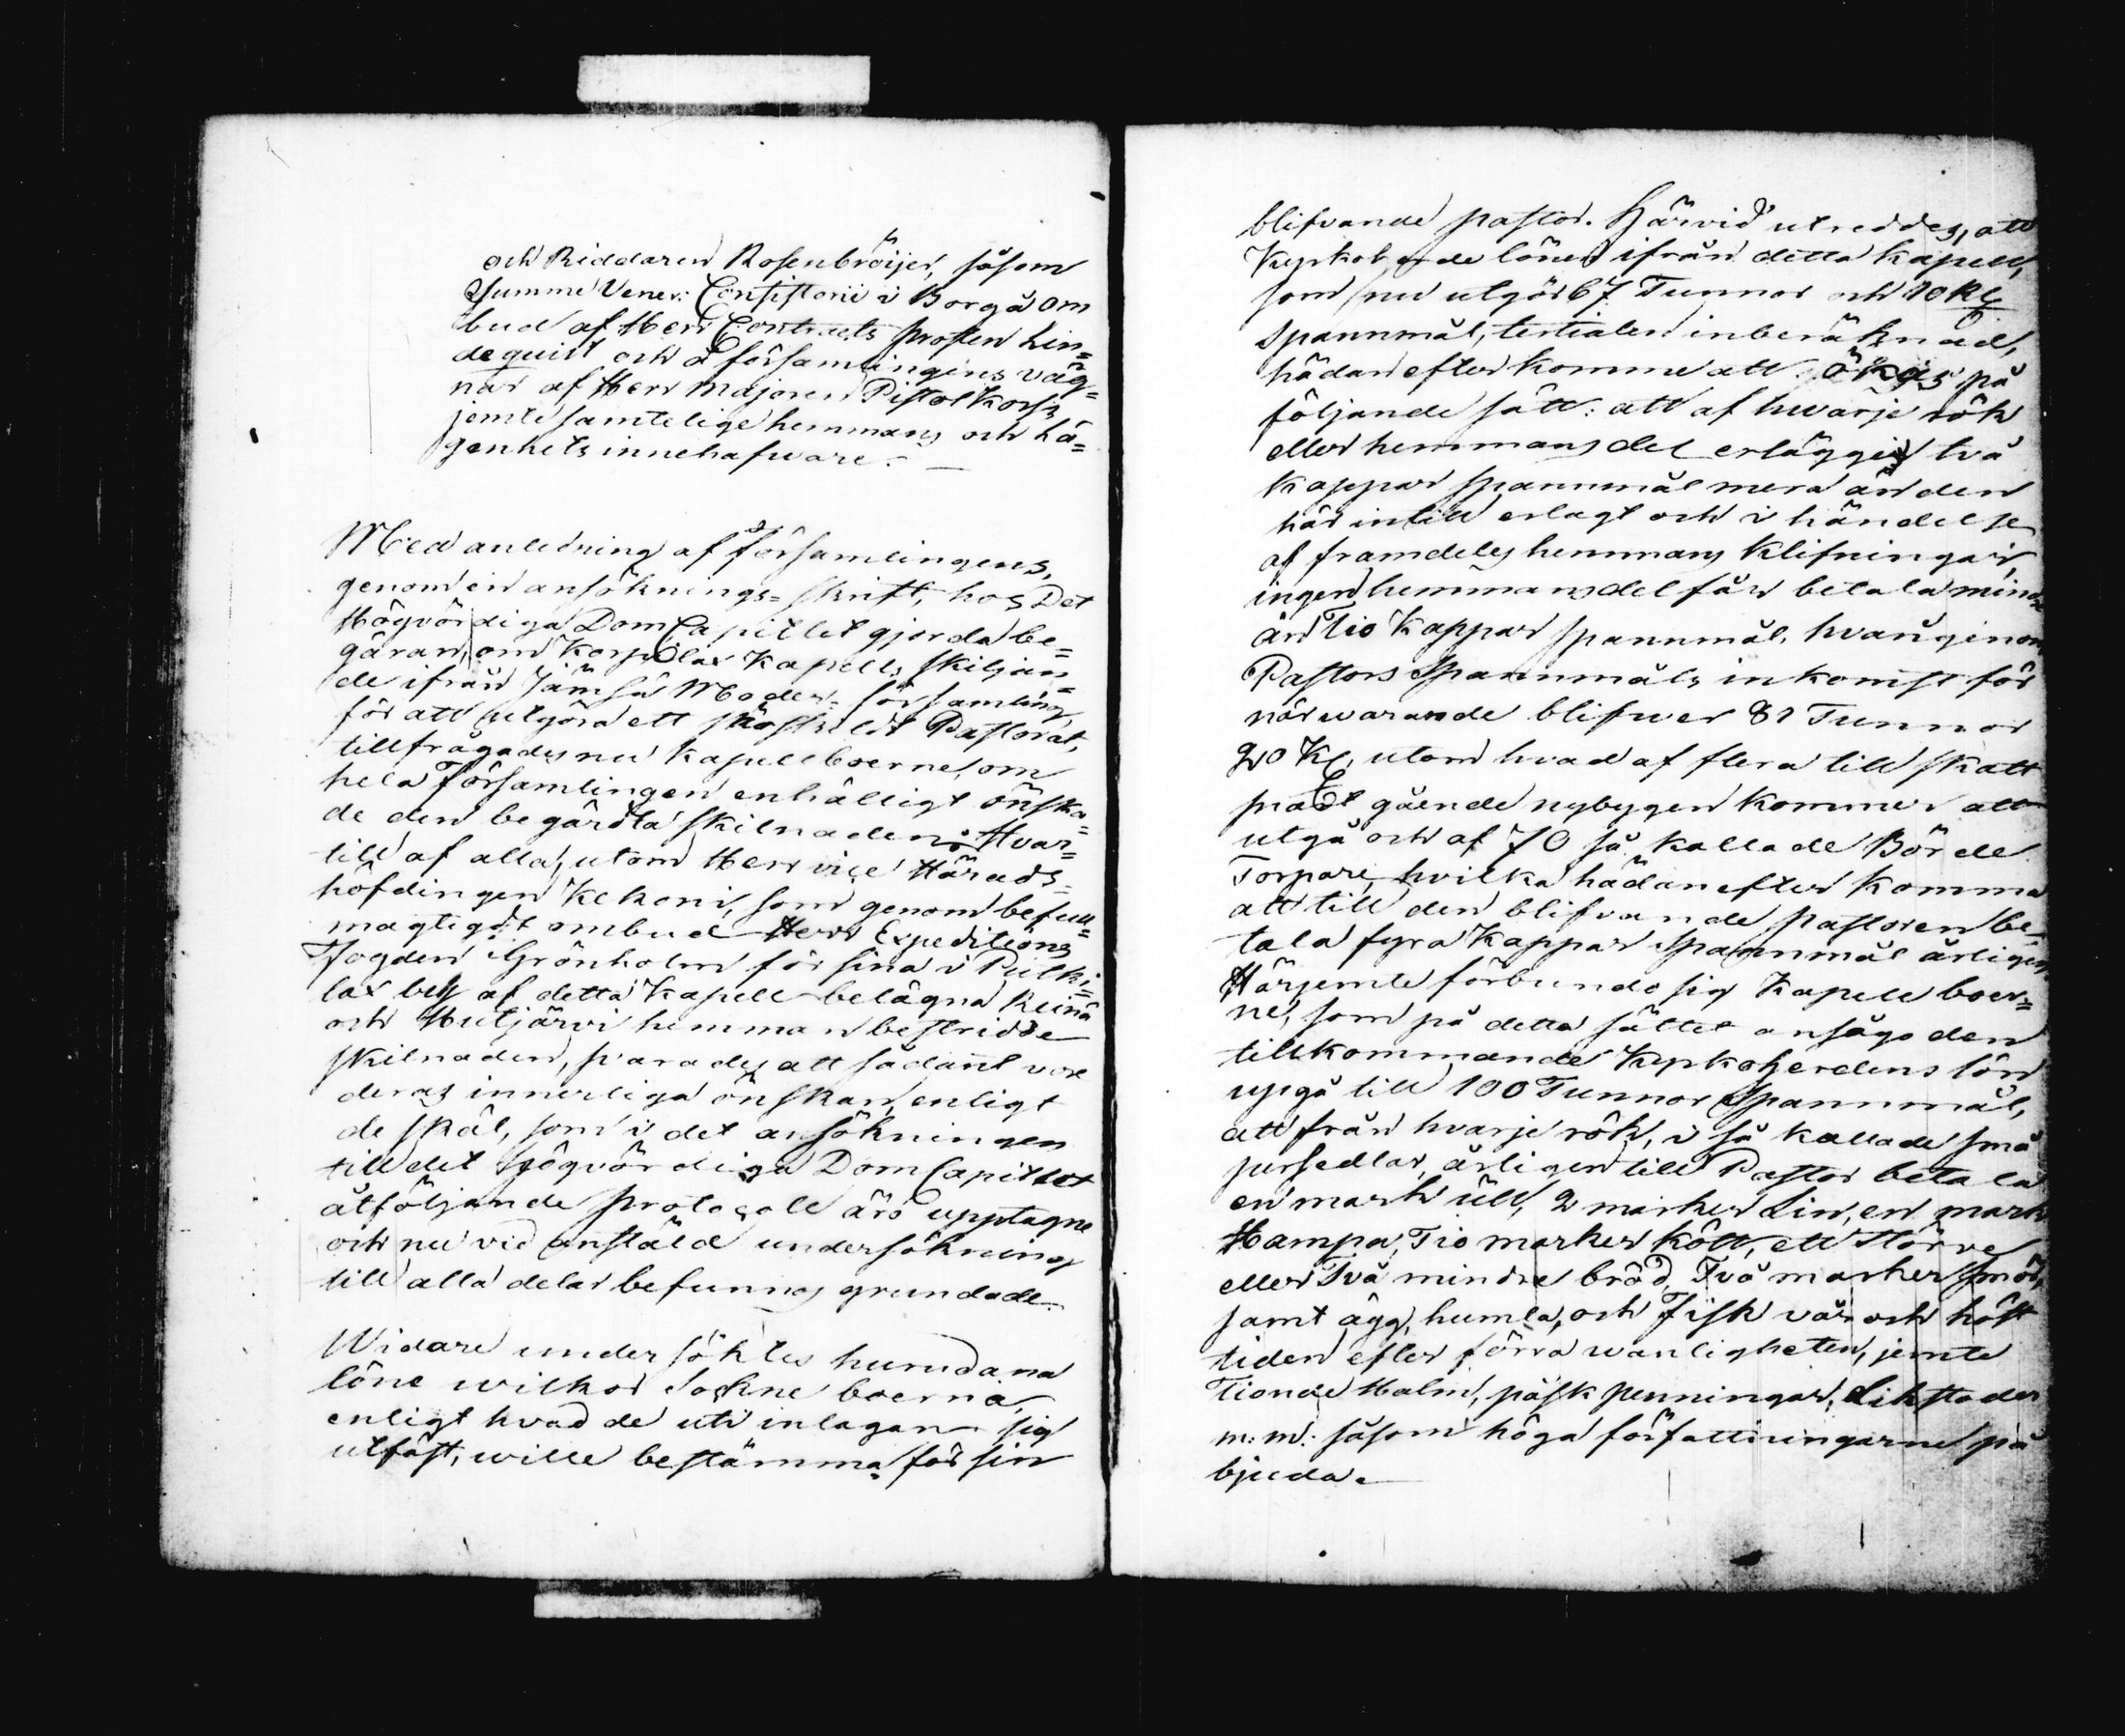 och Riddaren Rosenbröijer, såsom
Summe Vener: Consistorii i Borgå om
bud af Herr Contracts prosten Lin=
dequist och å församlingens väg=
nar af Herr Majoren Pistolkors,
jemte samtelige hemmans och Lä=
genhets innehafvare. —
Med anledning af församlingens,
genom en ansöknings=skrift, hos Det
Högvördiga DomCapitlet gjorda be=
gäran, om Korpilax Kapells skiljan=
de ifrån Jämsä Moder=församling,
för att utgöra ett särskildt Pastorat,
tillfrågades nu Kapellboerne, om
hela Församlingen enhälligt önska=
de den begärda skilnaden. Hvar=
till af alla, utom Herr vice Härads=
höfdingen Kekoni, som genom befull=
mägtigat ombud Herr Expeditions
Fogden Grönholm för sina i Putki=
lax by af detta Kapell belägna Reinä
och Mutjärvi hemman bestridde
skilnaden, svarades att sådant vore
deras innerliga önskan, enligt
de skäl, som i det ansökningen
till det Högvördiga DomCapitlet
åtföljande protocoll äro upptagne
och nu vid anstäld undersökning
till alla delar befunnos grundade.
Widare undersöktes hurudana
löne wilkor Sockne boerna,
enligt hvad de uti inlagan sig
utfäst, wille bestämma för sin
blifvande pastor. Härvid utreddes, att
Kyrkoherde lönen ifrån detta kapell,
som nu utgör 67 Tunnor och 10 Kr
Spannmål, tertialen inberäknad,
hädanefter komme att ökas på
följande sätt: att af hwarje rök
eller hemmans del erlägges två
kappar spannmål mera än den
här intill erlagt och i händelse
af framdeles hemmans klifningar,
ingen hemmansdel får betala mindre
än Tio Kappar spannmål, hvarigenom
Pastors Spannmåls inkomst för
närwarande blifwer 81 Tunnor
20 K, utom hvad af flera till skatt
gående nybyggen kommer att
utgå och af 70 så kallade Börde
Torpare, hvilka hädanefter komma
att till den blifvande pastoren be=
tala fyra Kappar Spannmål årligen.
Härjemte förbundo sig Kapell boer=
ne, som på detta sättet ansågo den
tillkommande Kyrkoherdens lön
uppgå till 100 Tunnor Spannmål,
att från hvarje rök, i så kallade små
persedlar, årligen till Pastor betala
en mark ull, 2 marker Lin, en mark
Hampa, Tio marker kött, ett större
eller Två mindre bröd, Två marker smör,
samt ägg, humla, och Fisk vår och höst
tiden efter förra wanligheten, jemte
Tionde Halm, påsk penningar, Likstoder
m: m: såsom höga författningarne på
bjuda.